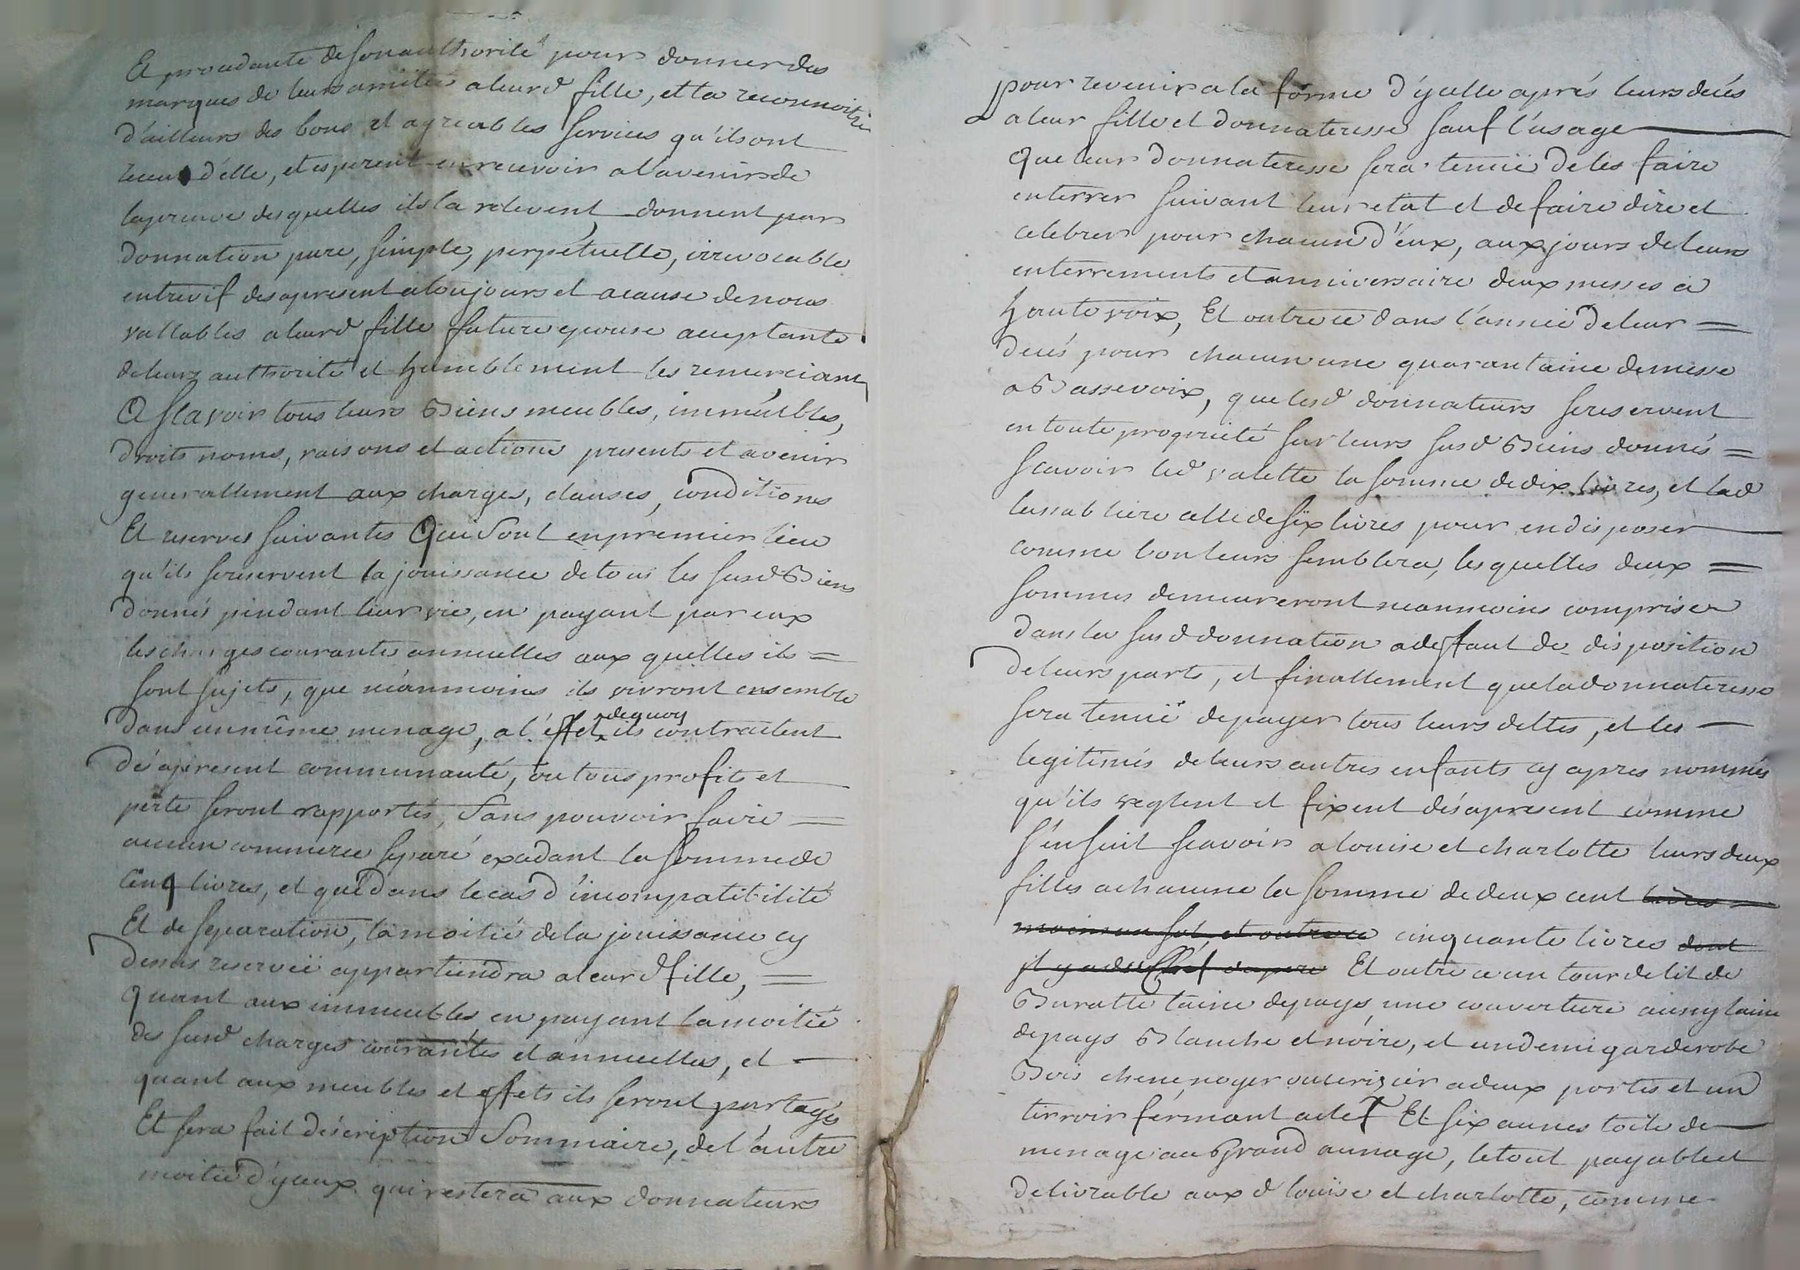 Et procedante de son authorité pour donner des
marques de leurs amitié a leurd fille, et la reconnoistre
d'ailleurs des bons et agreables services qu'ils ont
receu d'elle, et esperent en recevoir a l'avenir de
la preuve des quelles ils la relevent donnent par
donnation pure, simple, perpétuelle, irrevocable
entrevif des apresent a toujours et a cause de nous
vallables a leurd fille future epouse acceptante
de leurs authorité et humblement les remerciant
A Scavoir tous leurs Biens meubles, immeubles,
droits noms, raisons et actions presents et avenir
generallement aux charges, clauses, conditions
Et reserves suivantes Qui Sont en premier lieu
qu'ils se reservent la jouissance de tous les susd Biens
donnés pendant leur vie, en payant par eux
les charges courantes annuelles aux quelles ils =
sont sujets, que néanmoins ils vivront ensemble
dans un même menage, a l'effet dequoy ils contractent
dés apresent communauté, ou tous profits et
perte seront rapportés, Sans pouvoir faire =
aucun commerce separé exedant la somme de
cinq livres, et que dans le cas d'incompatibilité
Et de separation, la moitié de la jouissance cy
dessus reservée appartiendra a leurd fille, =
quant aux immeubles en payant la moitié
des susd charges courantes et annuelles, et —
quant aux meubles et effets ils seront partagés
Et sera fait déscription Sommaire, de l'autre
moitié d'yceux qui restera aux donnateurs
pour revenir a la forme d'ycelle aprés leurs decés
a leur fille et donnateresse sauf l'usage
Que leur donnateresse sera tenuë de les faire
enterrer suivant leur etat et de faire dire et
celebrer pour chacun d'eux, aux jours de leurs
enterrements et anniversaire deux messes a
haute voix, Et outre ce dans l'année de leur =
decés pour chacun une quarantaine de messe
a Basse voix, que lesd donnateurs se reservent
en toute proprieté sur leurs susd Biens donnés =
scavoir led valette la somme de dix livres, et lad
lassabliere celle de six livres pour en disposer
comme bon leurs semblera, les quelles deux =
sommes demeureront neanmoins comprises
dans la susd donnation a deffaut de disposition
de leurs parts, et finallement que la donnateresse
sera tenuë de payer tous leurs dettes, et les —
legitimés de leurs autres enfants cy apres nommés
qu'ils reglent et fixent dés apresent comme
s'en suit scavoir a louise et charlotte leurs deux
filles a chacune la somme de deux cent livres
moins un sol, et outre ce cinquante livres dont
Et outre ce un tour de lit de
Buratte laine de pays, une couverture aussy laine
de pays Blanche et noire, et un demi garderobe
Bois chene noyer ou cerizier a deux portes et un
tirroir fermant a clef Et six aunes toile de
menage au Grand aunage, le tout payable et
delivrable aux d louise et charlotte, comme